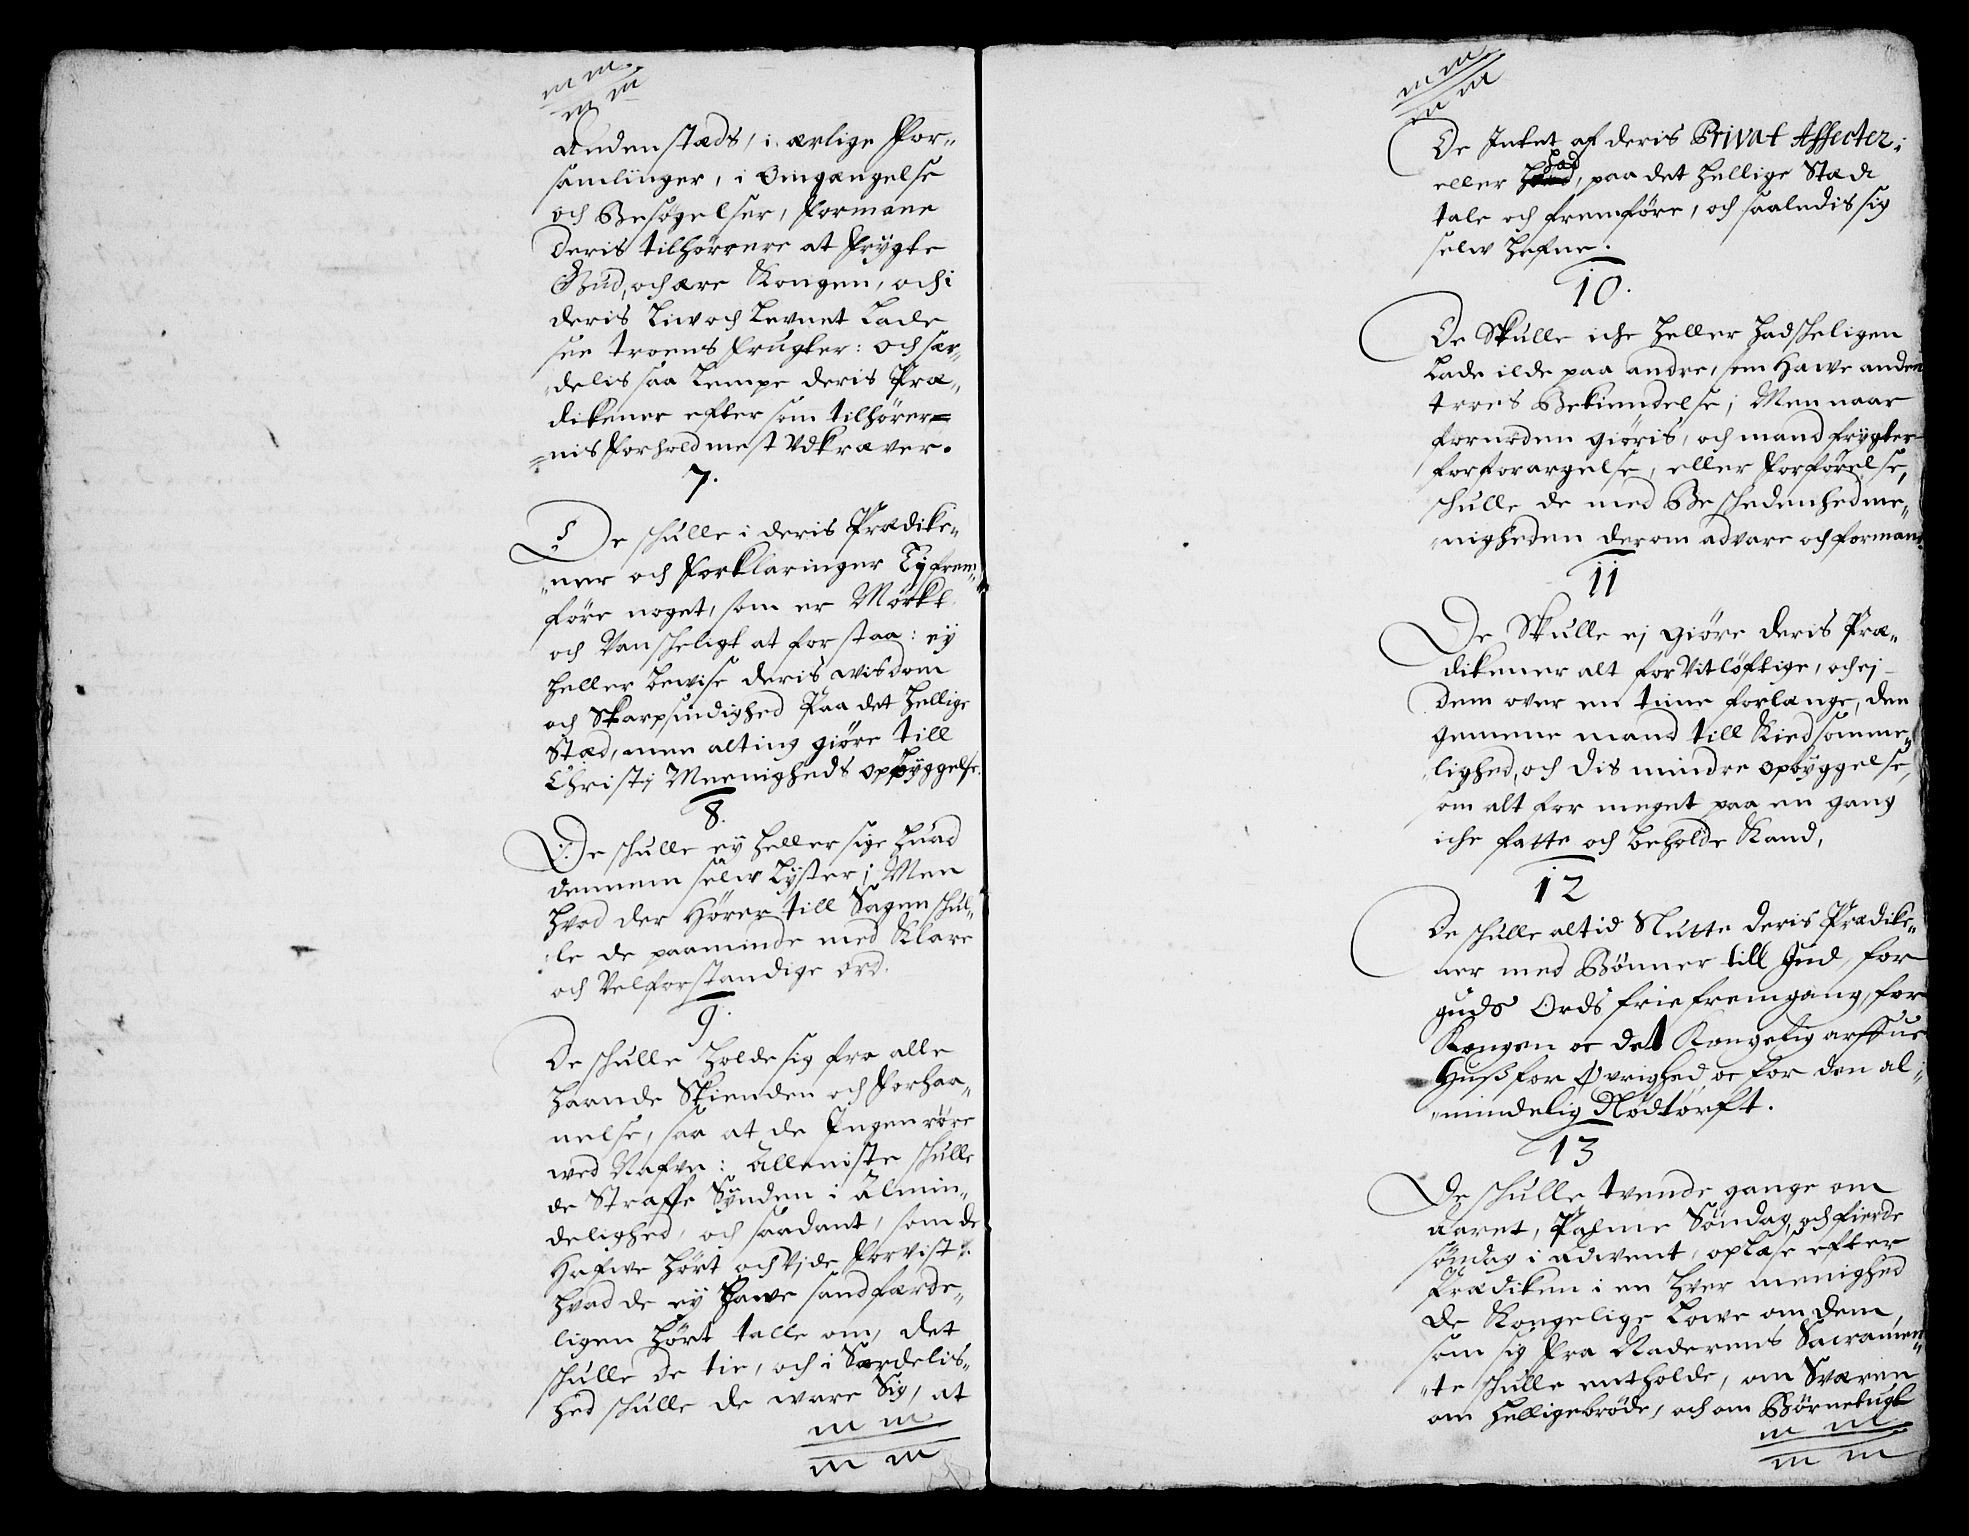 m m.
m m
Andenstæds, i ærlige For„
samlinger, i Omgængelse
och Besøgelser, Formane
Deris tilhørere at Frygte
Gud, och ære Kongen, och i
deris Liw och Levnet Lade
see troens Frugter: Och sær„
„delis saa Lempe deris Præ„
dikener efter som tilhører=
=nis Forhold mest Vdkræver.
7.
De schulle i deris Prædike„
„ner och Forklaringer Ey frem„
føre noget, som er Mørkt
och Vanscheligt at forstaa: ey
heller bewise deris wisdom
och Skarpsindighed Paa det hellige
Stæd, men alting giøre till
Christi Meenigheds opbyggelse.
8.
De schulle ey heller sige huad
dennem selw Lyster; Men
hvad der Hører till Sagen schul„
„le de paaminde med Klare
och Velforstandige ord.
9.
De schulle holde sig fra alle
haande Skienden och Forhaa„
nelse, saa at de Ingen røre
wed Nafn: Alleniste schulle
de Straffe Synden i Almin„
delighed, och saadant, som de
Hafwe hørt och Vide Forvist:
hvad de ey hawe sandfærde„
ligen hørt talle om, det
schulle de tie, och i Særdelis„
hed schulle de ware Sig, at
m m
m m
m m.
m m
De Intet af deris Privat Affecter;
eller had, paa det hellige Stæd
tale och fremføre, och saaledis sig
selw hefne.
10.
De Skulle iche heller hadscheligen
Lade ilde paa andre, som Hawe anden
troes Bekiendelse; Men naar
fornøden giøris, och mand frygter
for forargelse, eller Forførelse,
schulle de med Beschedenhed me„
„nigheden derom advare och formane.
11
De Skulle ej giøre deris Præ„
dikener alt for Vitløftige, och ej
dem over en time forlænge, den
gemene mand till Kiedsomme„
„lighed, och dis mindre opbyggelse,
som alt for meget paa en gang
iche fatte och beholde Kand,
12
De schulle altid Slutte deris Prædike„
ner med Bønner till Gud, for
guds Ords frie fremgang, for
Kongen oc det Kongelig arffue
Huß for Øvrighed, oc for den al„
„mindelig Nødtørft.
13
De schulle tvende gange om
aaret, Palme Søndag, och fierde
søndag i advent, oplæse efter
Prædiken i en hver menighed
de Kongelige Lowe om dem,
som sig fra Naderens Sacramen„
„te schulle entholde, om Sværen
om helligebrøde, och om Børnetugt
m m.
m m